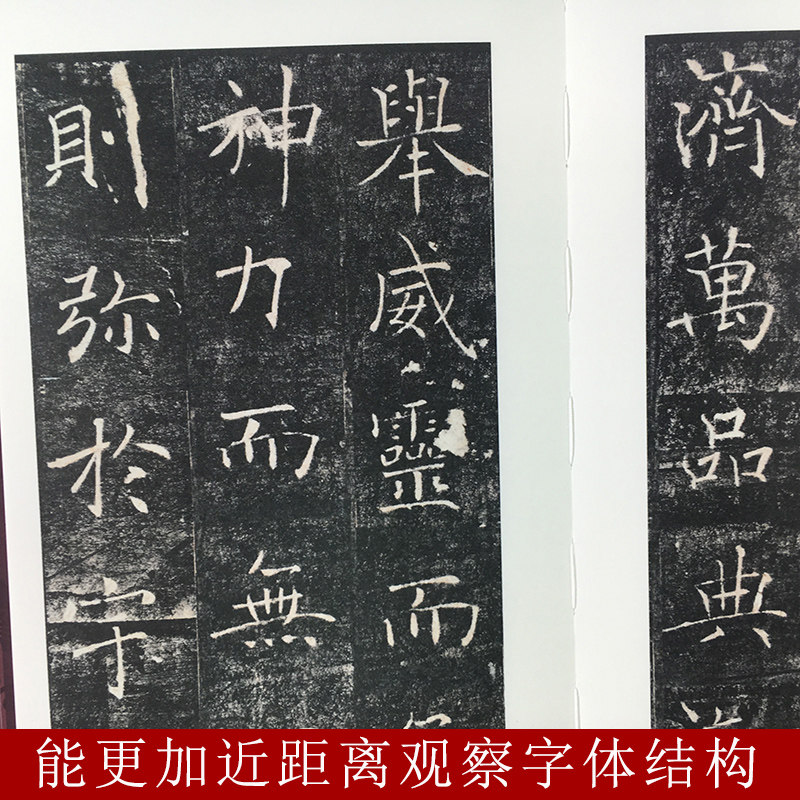 濟萬品典
舉威靈而
神力而無
則弥於宇
能更加近距离观察字体结构